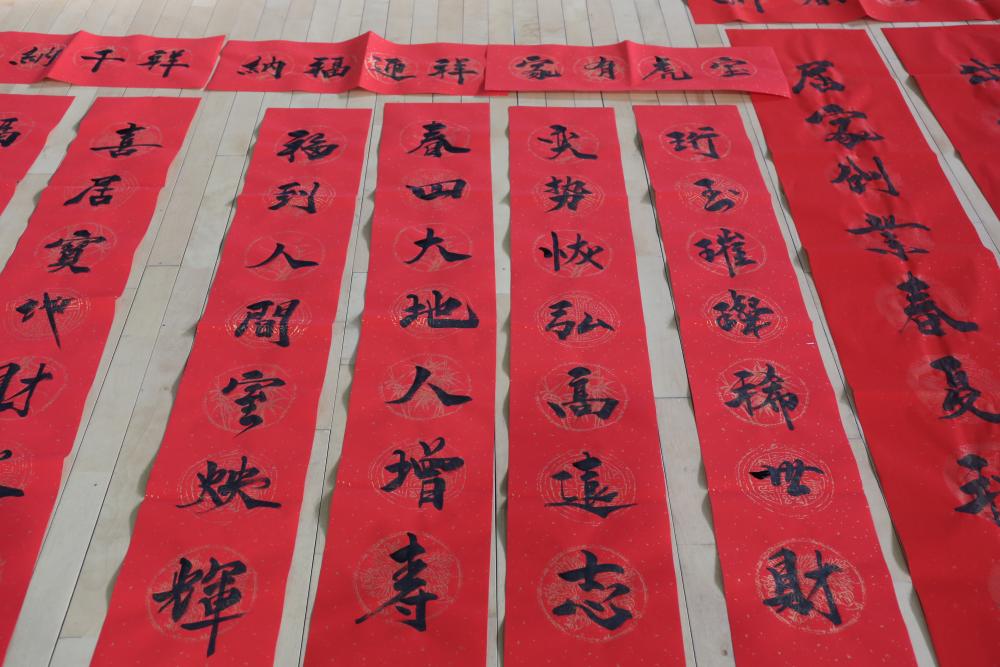 納千祥
納福迎祥
家有虎宝
居家创業春夏
珩玉璀璨稀世財
势恢弘高遠志
春回大地人增寿
福到人間室焕輝
喜居寳地財
福